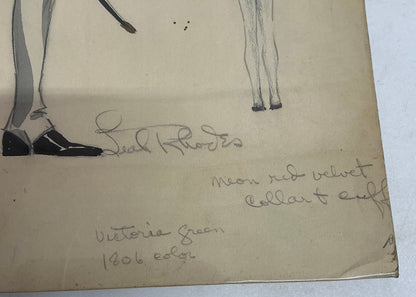 Leah Rhodes
neon red velvet
collar & cuff
Victoria green
1806 color